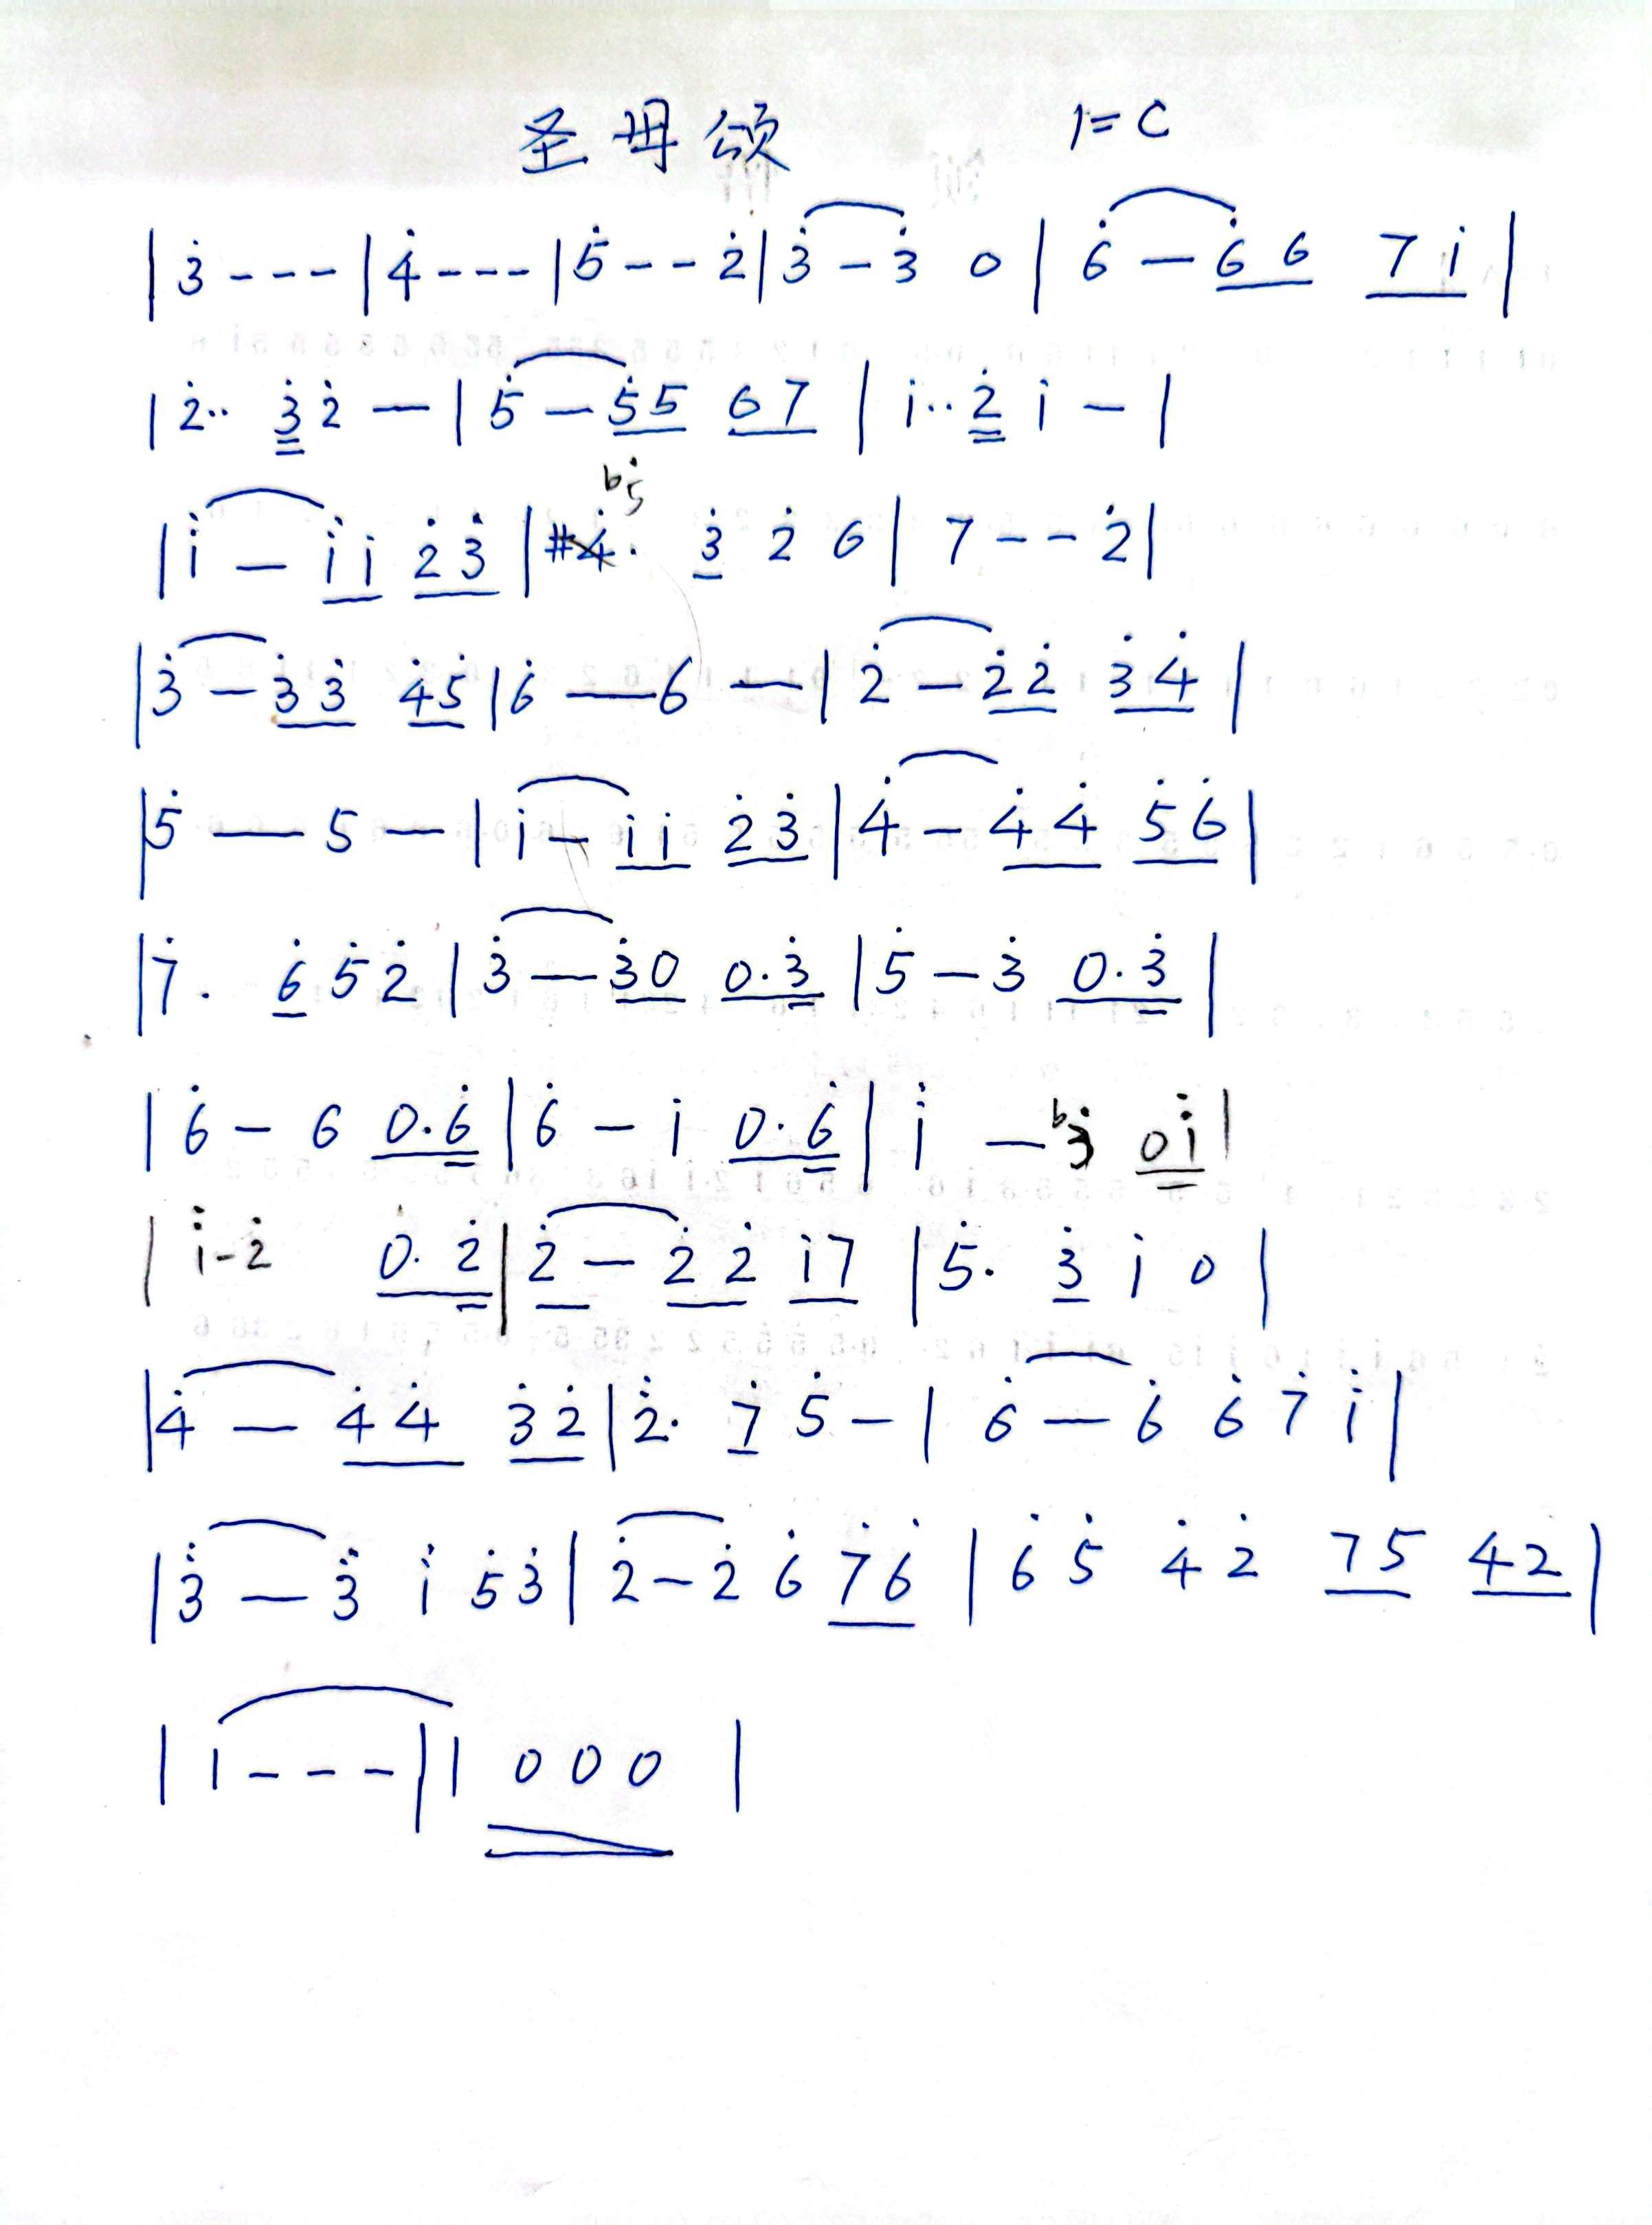 圣母颂 1=C
|3̇ - - - |4̇ - - - |5̇ - - 2̇|3̇ - 3̇ 0 | 6̇ — 6̇ 6 7 i̇ |
|2̇·· 3̇ 2̇ — | 5̇ — 5̇ 5 6 7 | i̇·· 2̇ i̇ - |
|i̇ — i̇ i̇ 2̇ 3̇ |#4̇· b5̇ 3̇ 2̇ 6 | 7 - - 2̇|
|3̇ — 3̇ 3̇ 4̇ 5̇ |6̇ — 6 — | 2̇ — 2̇ 2̇ 3̇ 4̇ |
|5̇ — 5 — | i̇ - i̇ i̇ 2̇ 3̇ |4̇ - 4̇ 4̇ 5̇ 6̇ |
|7̇· 6̇ 5̇ 2̇ | 3̇ — 3̇ 0 0·3̇ |5̇ - 3̇ 0·3̇ |
|6̇ - 6 0·6̇ |6̇ - i̇ 0·6̇ | 1̈ — b3̇ 0 1̈ |
|1̈ - 2̇ 0·2̇|2̇ — 2̇ 2̇ i̇ 7 |5̇· 3̇ i̇ 0 |
|4̇ — 4̇ 4̇ 3̇ 2̇ |2̈· 7̇ 5̇ - | 6̇ — 6̇ 6̇ 7̇ 1̈ |
|3̈ — 3̈ 1̈ 5̇ 3̇ | 2̇ - 2̇ 6̇ 7̇ 6̇ | 6̇ 5̇ 4̇ 2̇ 7 5 4 2 |
| 1 - - - | 1 0 0 0 |